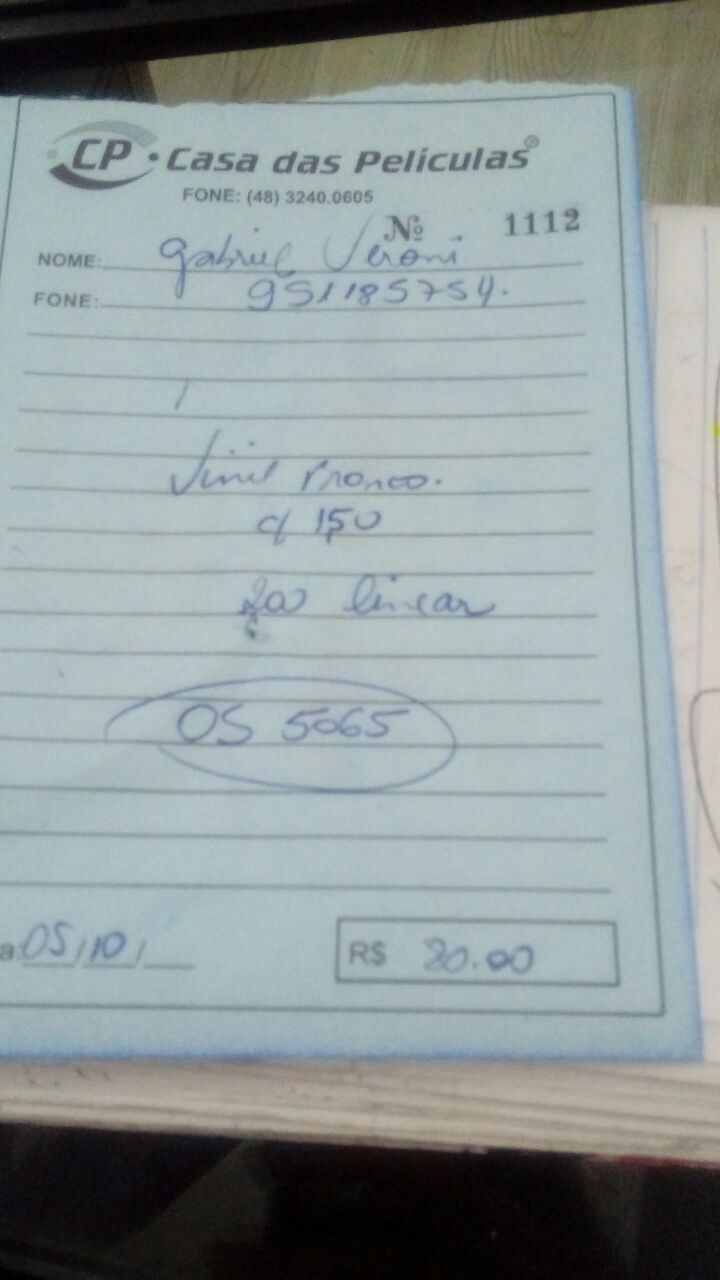 CP • Casa das Películas®
FONE: (48) 3240.0605
Nº 1112
NOME: Gabriel Veroni
FONE: 951185754.
Vinil
c/ 1,50
200 linear
OS 5065
a: 05/10/
R$ 80.00